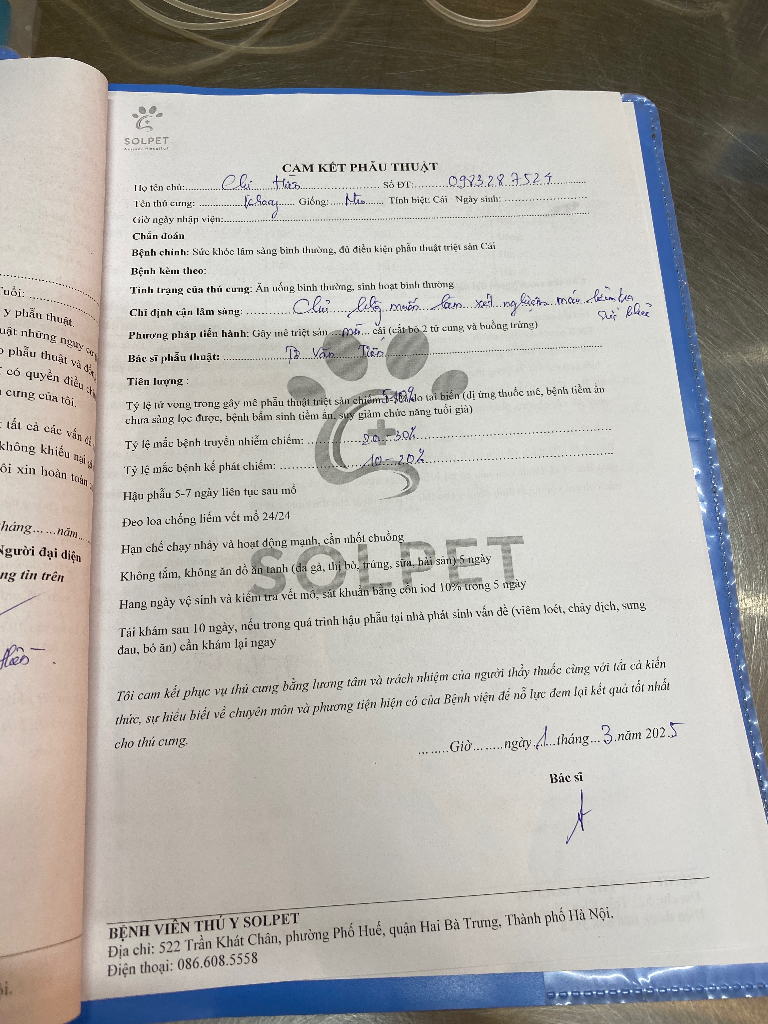 SOLPET
CAM KẾT PHẪU THUẬT
Họ tên chủ: Chị Hiền Số ĐT: 0983287524
Tên thú cưng: Giống: Mèo Tính biệt: Cái Ngày sinh:
Giờ ngày nhập viện:
Chẩn đoán
Bệnh chính: Sức khỏe lâm sàng bình thường, đủ điều kiện phẫu thuật triệt sản Cái
Bệnh kèm theo:
Tình trạng của thú cưng: Ăn uống bình thường, sinh hoạt bình thường
Chỉ định cận lâm sàng: Chủ không muốn làm xét nghiệm máu kiểm tra
sức khoẻ
Phương pháp tiến hành: Gây mê triệt sản mèo cái (cắt bỏ 2 tử cung và buồng trứng)
Bác sĩ phẫu thuật: Văn Tiến
Tiên lượng :
Tỷ lệ tử vong trong gây mê phẫu thuật triệt sản chiếm do tai biến (dị ứng thuốc mê, bệnh tiềm ẩn
chưa sàng lọc được, bệnh bẩm sinh tiềm ẩn, suy giảm chức năng tuổi già)
Tỷ lệ mắc bệnh truyền nhiễm chiếm: 20-30%
Tỷ lệ mắc bệnh kế phát chiếm: 10-20%
Hậu phẫu 5-7 ngày liên tục sau mổ
Đeo loa chống liếm vết mổ 24/24
Hạn chế chạy nhảy và hoạt động mạnh, cần nhốt chuồng
Không tắm, không ăn đồ ăn tanh (da gà, thị bò, trứng, sữa, hải sản) 5 ngày
Hang ngày vệ sinh và kiểm tra vết mổ, sát khuẩn bằng cồn iod 10% trong 5 ngày
Tái khám sau 10 ngày, nếu trong quá trình hậu phẫu tại nhà phát sinh vấn đề (viêm loét, chảy dịch, sưng
đau, bỏ ăn) cần khám lại ngay
SOLPET
Tôi cam kết phục vụ thú cưng bằng lương tâm và trách nhiệm của người thầy thuốc cùng với tất cả kiến
thức, sự hiểu biết về chuyên môn và phương tiện hiện có của Bệnh viện để nỗ lực đem lại kết quả tốt nhất
cho thú cưng.
Giờ ngày 1 tháng 3 năm 2025
Bác sĩ
BỆNH VIỆN THÚ Y SOLPET
Địa chỉ: 522 Trần Khát Chân, phường Phố Huế, quận Hai Bà Trưng, Thành phố Hà Nội.
Điện thoại: 086.608.5558
tuổi:
y phẫu thuật
uật những nguy cơ
phẫu thuật và
có quyền điều
cưng của tôi.
tất cả các vấn đề
không khiếu nại
ôi xin hoàn toàn
tháng năm
Người đại diện
ng tin trên
Hiền